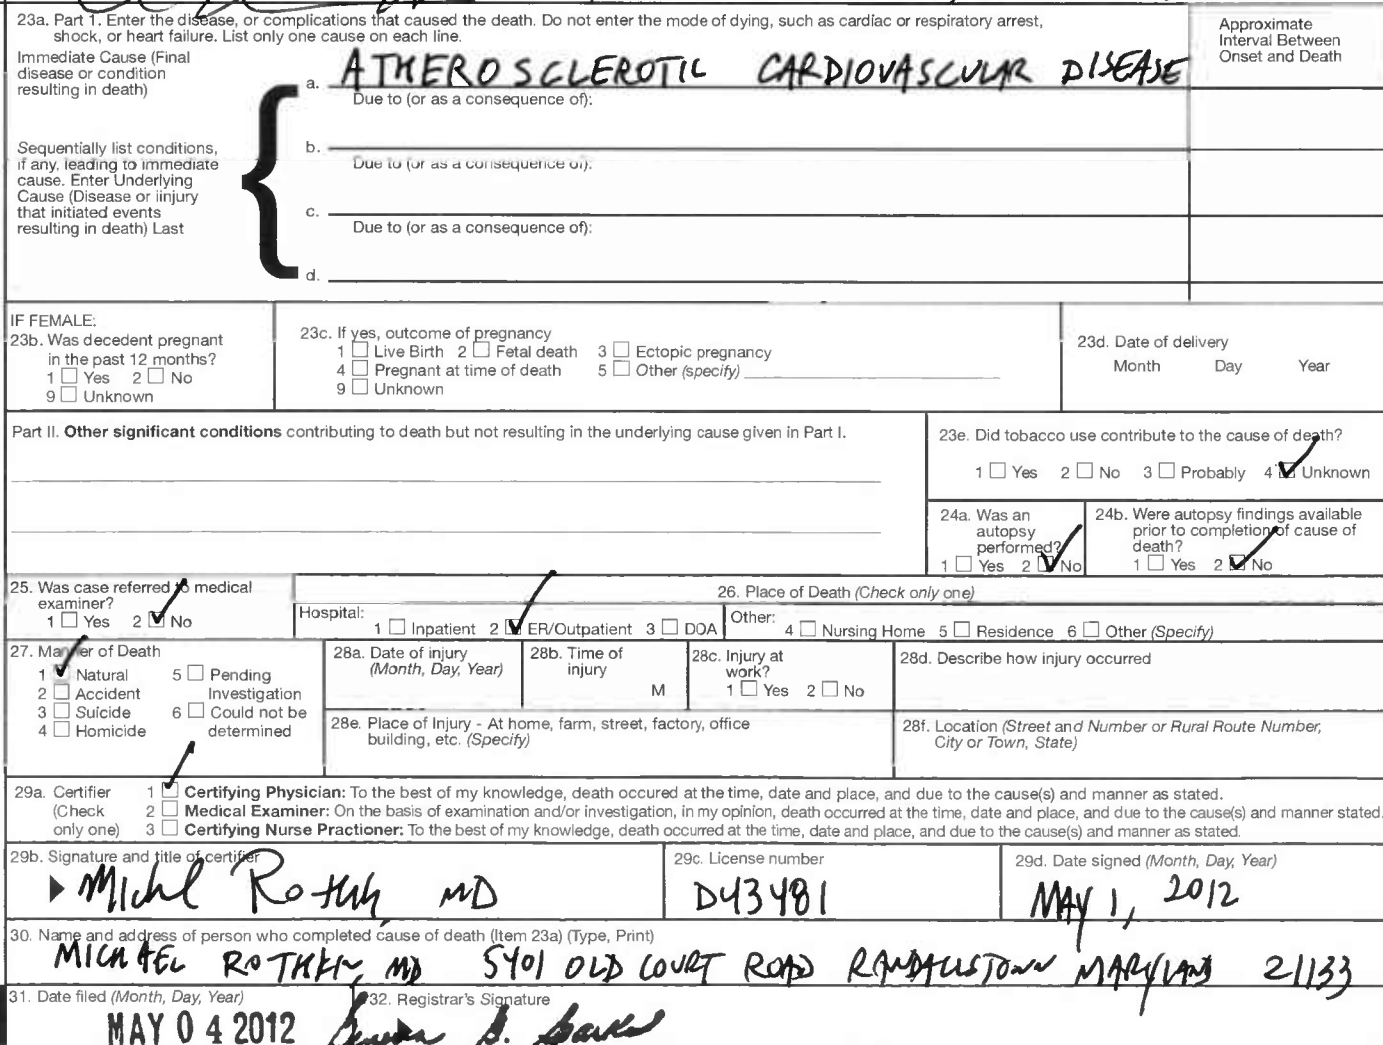 23a. Part 1. Enter the disease, or complications that caused the death. Do not enter the mode of dying, such as cardiac or respiratory arrest,
shock, or heart failure. List only one cause on each line.
Approximate
Interval Between
Onset and Death
Immediate Cause (Final
disease or condition
resulting in death)
a. ATHEROSCLEROTIC CARDIOVASCULAR DISEASE
Due to (or as a consequence of):
Sequentially list conditions,
if any, leading to immediate
cause. Enter Underlying
Cause (Disease or iinjury
that initiated events
resulting in death) Last
b.
Due to (or as a consequence of):
c.
Due to (or as a consequence of):
d.
IF FEMALE:
23b. Was decedent pregnant
in the past 12 months?
1 Yes 2 No
9 Unknown
23c. If yes, outcome of pregnancy
1 Live Birth 2 Fetal death 3 Ectopic pregnancy
4 Pregnant at time of death 5 Other (specify)
9 Unknown
23d. Date of delivery
Month Day Year
Part II. Other significant conditions contributing to death but not resulting in the underlying cause given in Part I.
23e. Did tobacco use contribute to the cause of death?
1 Yes 2 No 3 Probably 4 Unknown
24a. Was an
autopsy
performed?
1 Yes 2 No
24b. Were autopsy findings available
prior to completion of cause of
death?
1 Yes 2 No
25. Was case referred to medical
examiner?
1 Yes 2 No
26. Place of Death (Check only one)
Hospital: 1 Inpatient 2 ER/Outpatient 3 DOA
Other: 4 Nursing Home 5 Residence 6 Other (Specify)
27. Manner of Death
1 Natural 5 Pending
2 Accident Investigation
3 Suicide 6 Could not be
4 Homicide determined
28a. Date of injury
(Month, Day, Year)
28b. Time of
injury
M
28c. Injury at
work?
1 Yes 2 No
28d. Describe how injury occurred
28e. Place of Injury - At home, farm, street, factory, office
building, etc. (Specify)
28f. Location (Street and Number or Rural Route Number,
City or Town, State)
29a. Certifier
(Check
only one)
1 Certifying Physician: To the best of my knowledge, death occured at the time, date and place, and due to the cause(s) and manner as stated.
2 Medical Examiner: On the basis of examination and/or investigation, in my opinion, death occurred at the time, date and place, and due to the cause(s) and manner stated.
3 Certifying Nurse Practioner: To the best of my knowledge, death occurred at the time, date and place, and due to the cause(s) and manner as stated.
29b. Signature and title of certifier
MD
29c. License number
D43481
29d. Date signed (Month, Day, Year)
MAY 1, 2012
30. Name and address of person who completed cause of death (Item 23a) (Type, Print)
MICHAEL MD 5401 OLD COURT ROAD RANDALLSTOWN MARYLAND 21133
31. Date filed (Month, Day, Year)
MAY 04 2012
32. Registrar's Signature